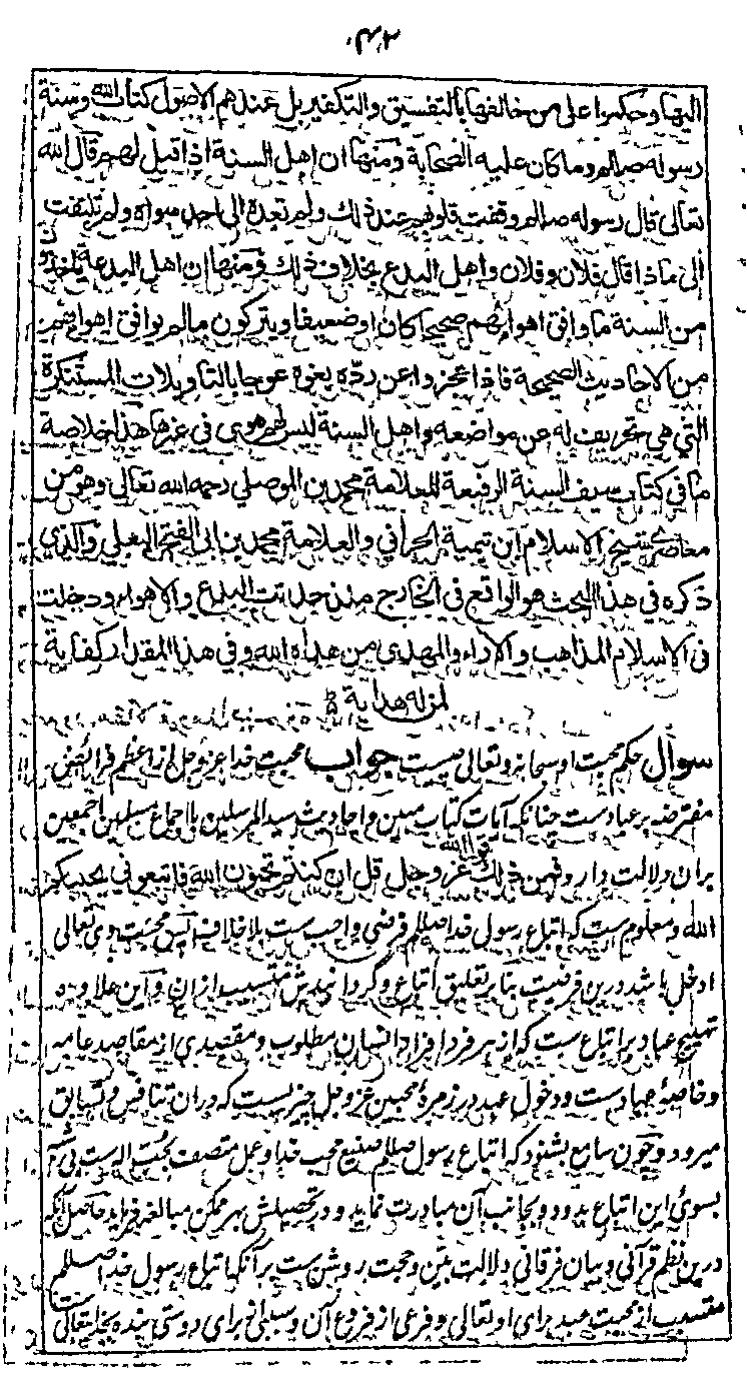 ۴۲
اليها وحكموا على من خالفها بالتفسيق والتكفير بل عندهم الاصول كتاب الله وسنة
رسوله صلالم وما كان عليه الصحابة ومنها ان اهل السنة اذا قيل لهم قال الله
تعالى قال رسوله صلالم وقفت قلوبهم عند ذلك ولم تعده الى احد سواه ولم تلتفت
الى ماذا قال فلان وفلان واهل البدع بخلاف ذلك ومنها ان اهل البدعة يأخذون
من السنة ما وافق اهواءهم صحيحا كان او ضعيفا ويتركون مالم يوافق اهواءهم
من الاحاديث الصحيحة فاذا عجزوا عن رده بغوه عوجا بالتاويلات المستنكرة
التي هي تحريف له عن مواضعه واهل السنة ليس لهم هوى في غيرها هذا خلاصة
ما في كتاب سيف السنة الرفيعة للعلامة محمد بن الموصلي رحمه الله تعالى وهو من
معاصري شيخ الاسلام ابن تيمية الحراني والعلامة محمد بن ابي الفتح البعلي والذي
ذكره في هذا البحث هو الواقع في الخارج منذ حدثت البدع والاهواء ودخلت
في الاسلام المذاهب والآراء والمهدي من هداه الله وفي هذا المقدار كفاية
لمن له هداية
سوال حكم محبت او سبحانه وتعالى چيست جواب محبت خدا عز وجل از اعظم فرائض
مفترضه بر عبادست چنانكه آيات كتاب مبين واحاديث سيد المرسلين با اجماع مسلمين اجمعين
بران دلالت دارد فمن ذلك قول الله عز وجل قل ان كنتم تحبون الله فاتبعوني يحببكم
الله ومعلوم ست كه اتباع رسول خدا صللم فرضى واجب ست بلا خلاف پس محبت وى تعالى
ادخل باشد درين فرضيت بنابر تعليق اتباع وگردانيدنش متسبب ازان واين علاوه
تهييج عباد بر اتباع ست كه از هر فرد افراد انسان مطلوب ومقصدى از مقاصد عامه
وخاصهٔ عبادست ودخول عبد در زمرهٔ محبين عز وجل چيزيست كه دران تنافس وتسابق
ميرود وچون سامع بشنود كه اتباع رسول صللم صنيع محب خدا وعمل متصف بحبت اوست
بسوى اين اتباع بدود وبجانب آن مبادرت نمايد ودر تحصيلش بهر ممكن مبالغه فرمايد حاصل آنكه
درين نظم قرآنى وبيان فرقانى دلالت بين وحجت روشن ست بر آنكه اتباع رسول خدا صللم
متسبب از محبت عبد براى او تعالى وفرعى از فروع آن وسببى براى دوستى بنده بحق تعالى ست